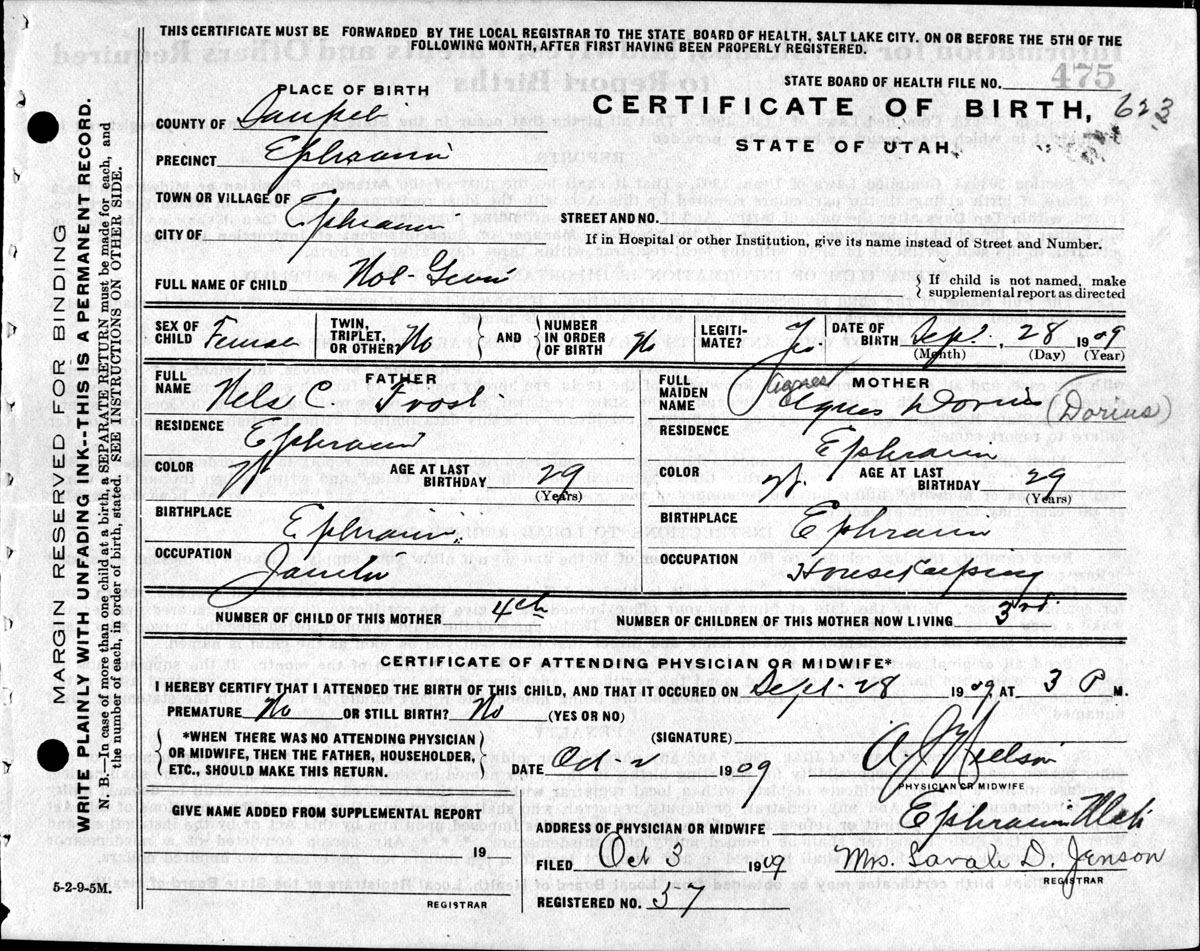 THIS CERTIFICATE MUST BE FORWARDED BY THE LOCAL REGISTRAR TO THE STATE BOARD OF HEALTH, SALT LAKE CITY, ON OR BEFORE THE 5TH OF THE
FOLLOWING MONTH, AFTER FIRST HAVING BEEN PROPERLY REGISTERED.
475
STATE BOARD OF HEALTH FILE NO.
PLACE OF BIRTH
CERTIFICATE OF BIRTH, 623
COUNTY OF Sanpete
STATE OF UTAH.
PRECINCT Ephraim
TOWN OR VILLAGE OF Ephraim
STREET AND NO.
CITY OF
If in Hospital or other Institution, give its name instead of Street and Number.
FULL NAME OF CHILD Not-Given
If child is not named, make
supplemental report as directed
SEX OF CHILD Female TWIN, TRIPLET, OR OTHER No AND NUMBER IN ORDER OF BIRTH No LEGITIMATE? Yes DATE OF BIRTH Sept. 28 1909
(Month) (Day) (Year)
FATHER
FULL NAME Nels C. Frost
RESIDENCE Ephraim
COLOR W AGE AT LAST BIRTHDAY 29
(Years)
BIRTHPLACE Ephraim
OCCUPATION Janitor
MOTHER
FULL MAIDEN NAME Agnes Agnes Dorius (Dorius)
RESIDENCE Ephraim
COLOR W. AGE AT LAST BIRTHDAY 29
(Years)
BIRTHPLACE Ephraim
OCCUPATION Housekeeping
NUMBER OF CHILD OF THIS MOTHER 4th NUMBER OF CHILDREN OF THIS MOTHER NOW LIVING 3rd.
CERTIFICATE OF ATTENDING PHYSICIAN OR MIDWIFE*
I HEREBY CERTIFY THAT I ATTENDED THE BIRTH OF THIS CHILD, AND THAT IT OCCURED ON Sept-28 1909 AT 3 P M.
PREMATURE No OR STILL BIRTH? No (YES OR NO)
*WHEN THERE WAS NO ATTENDING PHYSICIAN
OR MIDWIFE, THEN THE FATHER, HOUSEHOLDER,
ETC., SHOULD MAKE THIS RETURN.
(SIGNATURE) Nielson
PHYSICIAN OR MIDWIFE
DATE Oct 2 1909
GIVE NAME ADDED FROM SUPPLEMENTAL REPORT
19
REGISTRAR
ADDRESS OF PHYSICIAN OR MIDWIFE Ephraim Utah
FILED Oct 3 1909 Mrs. Sarah D. Jenson
REGISTRAR
REGISTERED NO. 57
5-2-9-5M.
MARGIN RESERVED FOR BINDING
WRITE PLAINLY WITH UNFADING INK--THIS IS A PERMANENT RECORD.
N. B.—In case of more than one child at a birth, a SEPARATE RETURN must be made for each, and
the number of each, in order of birth, stated. SEE INSTRUCTIONS ON OTHER SIDE.